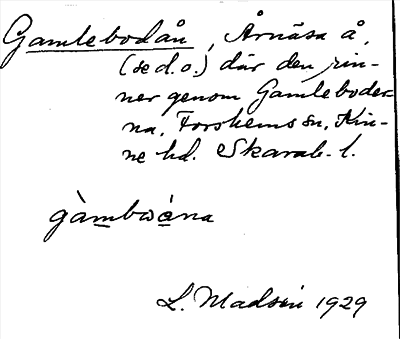 Gamlebodån, Årnäsa å,
(se d. o.) där den rin-
ner genom Gamleboder-
na, Forshems sn, Kin-
ne hd. Skarab. l.
gàmbwána
L. Madsén 1929